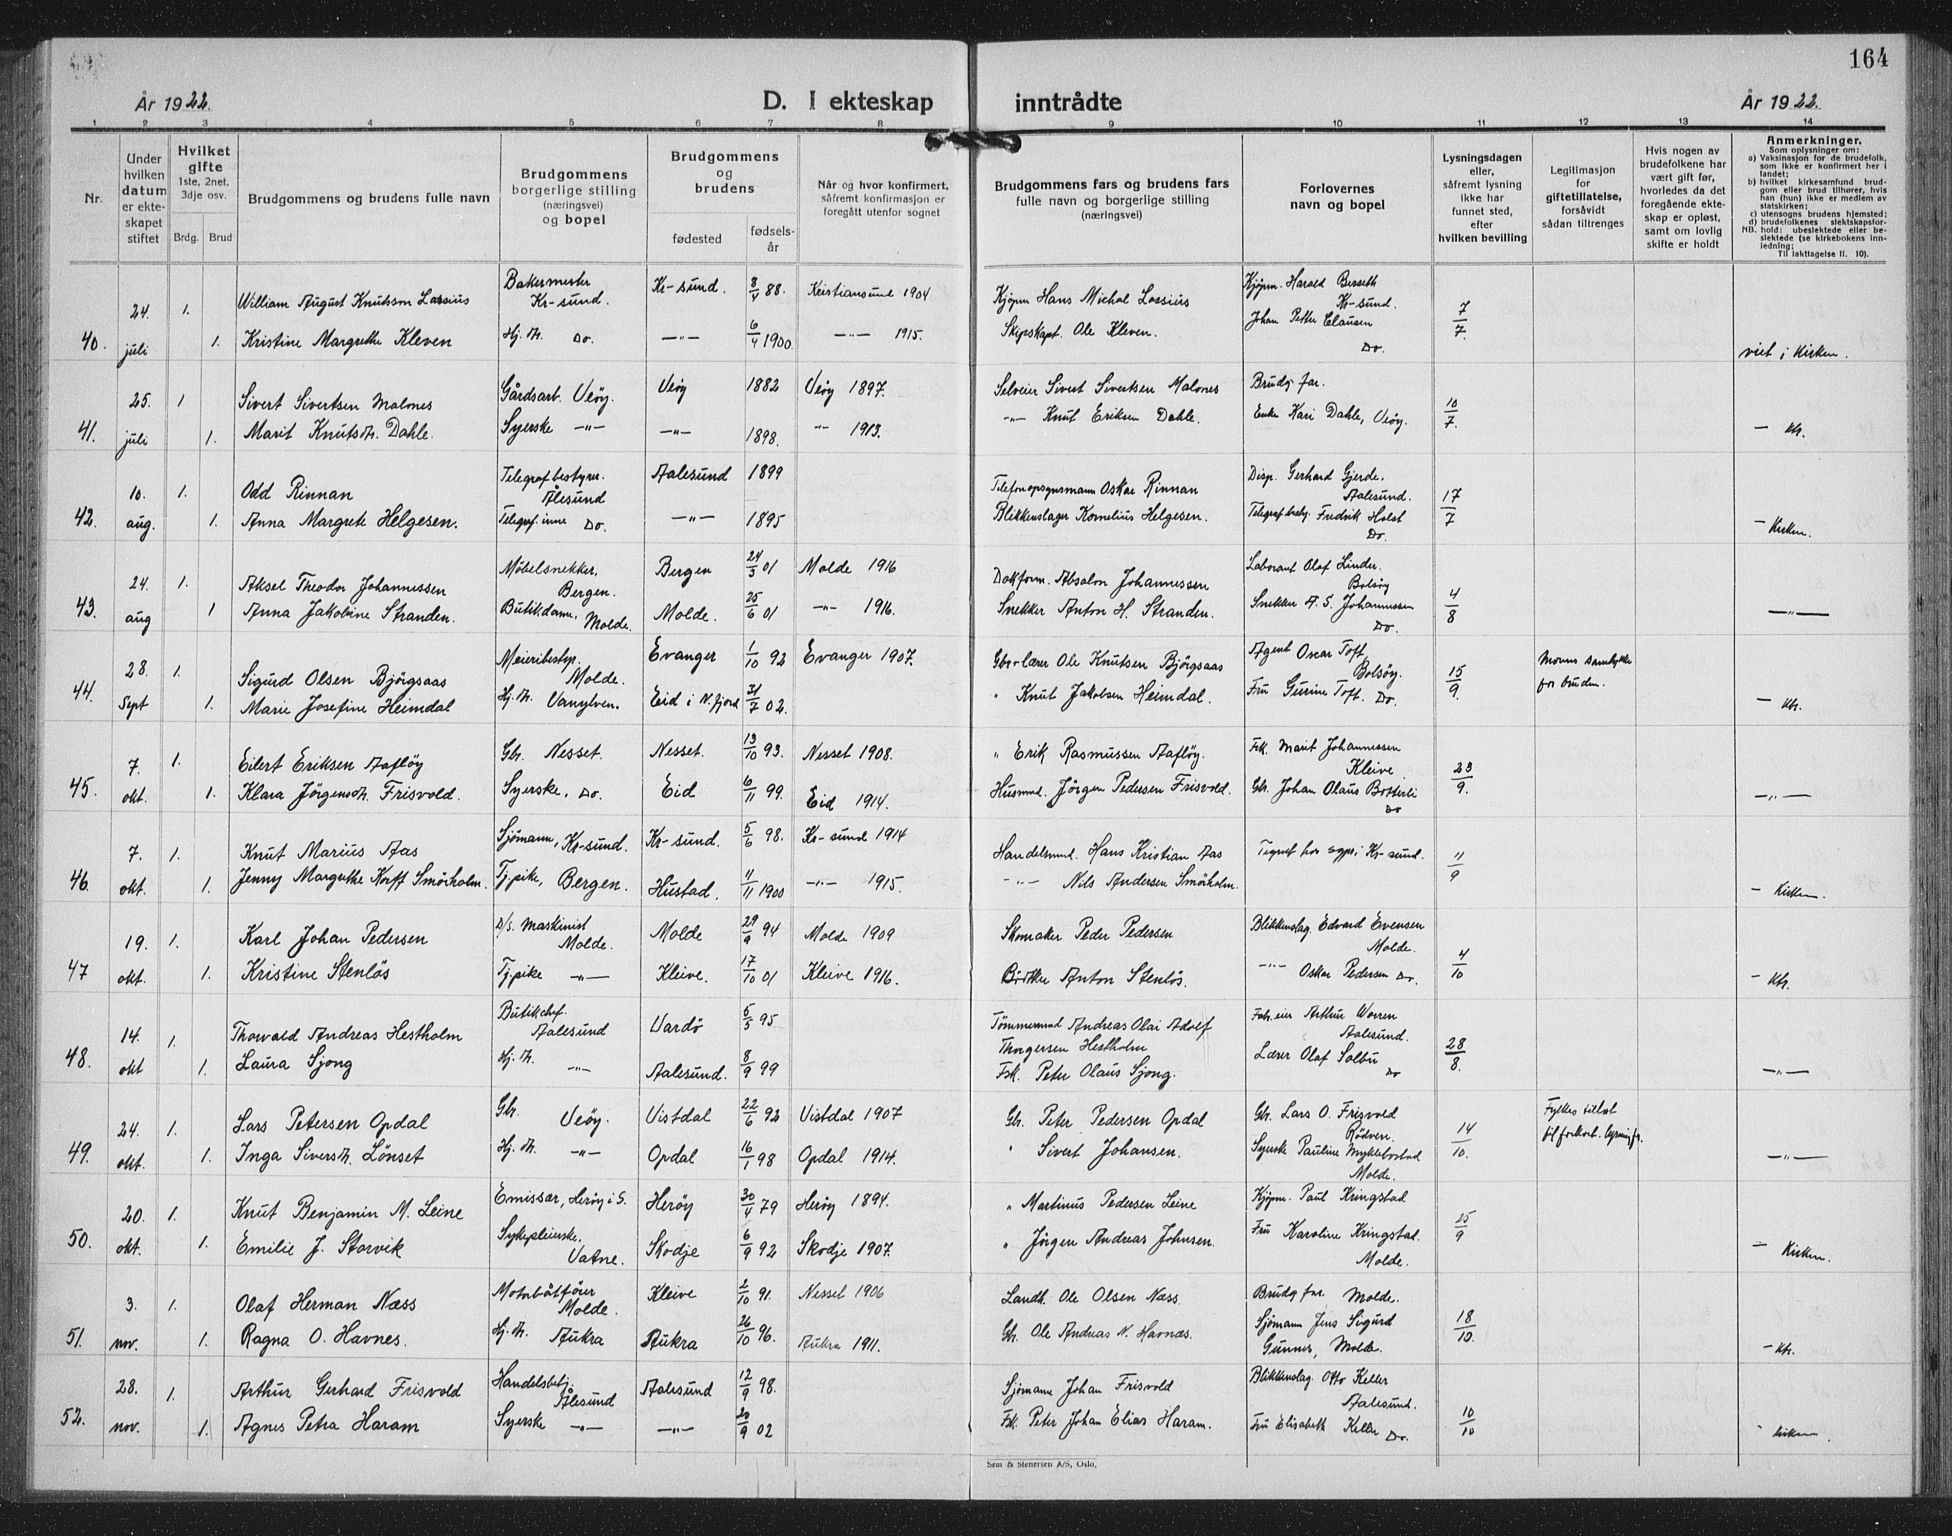 164
År 1922.
D. I ekteskap inntrådte
År 1922.
1 2 3 4 5 6 7 8 9 10 11 12 13 14
Nr.
Under hvilken datum er ekteskapet stiftet
Hvilket gifte
1ste, 2net, 3dje osv.
Brdg. Brud
Brudgommens og brudens fulle navn
Brudgommens borgerlige stilling (næringsvei) og bopel
Brudgommens og brudens
fødested
fødselsår
Når og hvor konfirmert, såfremt konfirmasjon er foregått utenfor sognet
Brudgommens fars og brudens fars fulle navn og borgerlige stilling (næringsvei)
Forlovernes navn og bopel
Lysningsdagen eller, såfremt lysning ikke har funnet sted, efter hvilken bevilling
Legitimasjon for giftetillatelse, forsåvidt sådan tiltrenges
Hvis nogen av brudefolkene har vært gift før, hvorledes da det foregående ekteskap er opløst, samt om lovlig skifte er holdt
Anmerkninger.
Som oplysninger om:
a) Vaksinasjon for de brudefolk, som ikke er konfirmert her i landet;
b) hvilket kirkesamfund brudgom eller brud tilhører, hvis han (hun) ikke er medlem av statskirken;
c) utensogns brudens hjemsted;
d) brudefolkenes slektskapsforhold: ubeslektede eller beslektede (se kirkebokens innledning;
NB. Til iakttagelse II. 10).
40. 24. juli 1. William August Knutson Lossius Bakermester Kr-sund. Kr-sund. 8/4 88. Kristiansund 1904 Kjøpm Hans Michal Lossius Kjøpm. Harald Berseth Kr-sund. 7/7
1. Kristine Margrethe Kleven Hj. dt. Do. —"— 6/4 1900. —"— 1915. Skipskapt. Ole Kleven. Johan Petter Clausen Do. viet i Kirken.
41. 25. juli 1 Sivert Sivertsen Malones Gårdsarb. Veøy. Veøy 1882 Veøy 1897. Selveier Sivert Sivertsen Malones Brudg far. 10/7.
1. Marit Knutsdt. Dahle. Syerske —"— —"— 1898. —"— 1913. —"— Knut Eriksen Dahle. Enke Kari Dahle, Veøy. — Ktr.
42. 10. aug. 1. Odd Rinnan Telegrafbestyrer Ålesund Aalesund 1899 Telefonopsynsmann Oskar Rinnan Disp. Gerhard Gjerde, Aalesund. 17/7
1. Anna Margrete Helgesen. Telegraf.inne Do. —"— 1895 Blikkenslager Kornelius Helgesen. Telegrafbesty. Fredrik Holst Do. — Kirken.
43. 24. aug 1. Aksel Theodor Johannessen Møbelsnekker, Bergen. Bergen 24/3 01 Molde 1916 Absalon Johannessen Laborant Olaf Linder. Bolsøy 4/8
1 Anna Jakobine Stranden. Butikdame, Molde. Molde. 25/6 01 —"— 1916. Snekker Anton H. Stranden. Snekker A. S. Johannessen Do. —"—
44. 28. Sept 1. Sigurd Olsen Bjørgsaas Meieribestyr. Molde. Evanger 1/10 92 Evanger 1907. Gbr+lærer Ole Knutsen Bjørgsaas Agent Oscar Toft, Bolsøy. 15/9 Morens samtykke for bruden.
1. Marie Josefine Heimdal Hj. dt. Vanylven. Eid i N.fjord 31/7 02. " Knut Jakobsen Heimdal. Fru Gurine Toft. Do. — Ktr.
45. 7. okt. 1. Eilert Eriksen Aafløy Gbr. Nesset. Nesset. 13/10 93. Nesset 1908. " Erik Rasmussen Aafløy. Frk. Marit Johannessen Kleive 23/9.
1. Klara Jørgensdt. Frisvold. Syerske, Do. Eid 6/11 99. Eid 1914. Husmd. Jørgen Pedersen Frisvold. Gbr. Johan Olaus Botterli Do —"—
46. 7. okt. 1. Knut Marius Aas Sjømann, Kr-sund. Kr-sund. 5/6 98. Kr-sund 1914 Handelsmd. Hans Kristian Aas Tegnet hos sgpr i Kr-sund. 11/9
1. Jenny Margrethe Korff Smørholm. Tj.pike, Bergen. Hustad. 11/11 1900 —"— 1915. —"— Nils Andersen Smørholm. — Kirken.
47 19. okt. 1. Karl Johan Pedersen D/S. maskinist Molde. Molde 29/9 94 Molde 1909 Skomaker Peder Pedersen Blikkenslag. Edvard Evensen Molde. 4/10
1. Kristine Stenløs Tj.pike —"— Kleive. 17/10 01 Kleive 1916. Anton Stenløs. —"— Oskar Pedersen Do. — Ktr.
48. 14. okt 1. Thorvald Andreas Hestholm Butikchef. Aalesund Vardø 5/5 95 Tømmermnd Andreas Olai Adolf Thorgersen Hestholm Fabr.eier Arthur Worren Aalesund. 28/8.
1. Laura Sjong Hj. dt. —"— Aalesund. 8/9 99 Fsk. Peter Olaus Sjong. Lærer Olaf Solbu Do —"—
49. 24. okt. 1. Lars Petersen Opdal Gbr. Veøy. Vistdal 22/6 92 Vistdal 1907 Gbr. Peter Pedersen Opdal Gbr. Lars O. Frisvold Rødven. 14/10. Fylkes tillat til forkort. lysning
1. Inga Siversdt. Lønset Hj. dt. —"— Opdal 16/1 98 Opdal 1914. " Sivert Johansen. Syerske Pauline Myklebostad Molde. —"—
50. 20. okt. 1. Knut Benjamin M. Leine Emissær, Herøy i S. Herøy 30/4 79 Herøy 1894. " Martinus Pedersen Leine Kjøpm. Paul Kringstad 25/9
1. Emilie J. Storvik Sykepleierske, Vatne. Skodje 6/9 92 Skodje 1907. " Jørgen Andreas Johnsen. Fru Karoline Kringstad. Molde. — Kirken.
51. 3. nov. 1. Olaf Herman Næss Motorbåtfører Molde. Kleive 2/10 91. Nesset 1906 Landh. Ole Olsen Næss Brudg far. Molde. 18/10.
1. Ragna O. Havnes. Hj. dt. Aukra Aukra 26/10 96. Aukra 1911. Gbr. Ole Andreas N. Havnæs. Sjømann Jens Sigurd Gunner, Molde. — Ktr.
52. 28. nov. 1. Arthur Gerhard Frisvold Handelsbetj. Ålesund Aalesund 12/9 98. Sjømann Johan Frisvold Blikkenslag. Otto Keller Aalesund. 10/10
1. Agnes Petra Haram Syerske —"— —"— 20/9 02 Fsk. Peter Johan Elias Haram. Fru Elisabeth Keller Do. kirken
Sem & Stenersen A/S, Oslo.